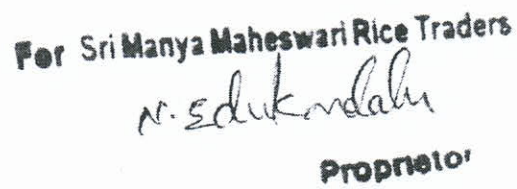 For Sri Manya Maheswari Rice Traders
N. Edukondalu
Proprietor